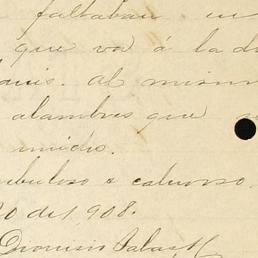 faltaban en
que va á la
al mismo
alambres que
unidro.
nebuloso e caluroso.
20 de 1,908.
Dionisio Salas